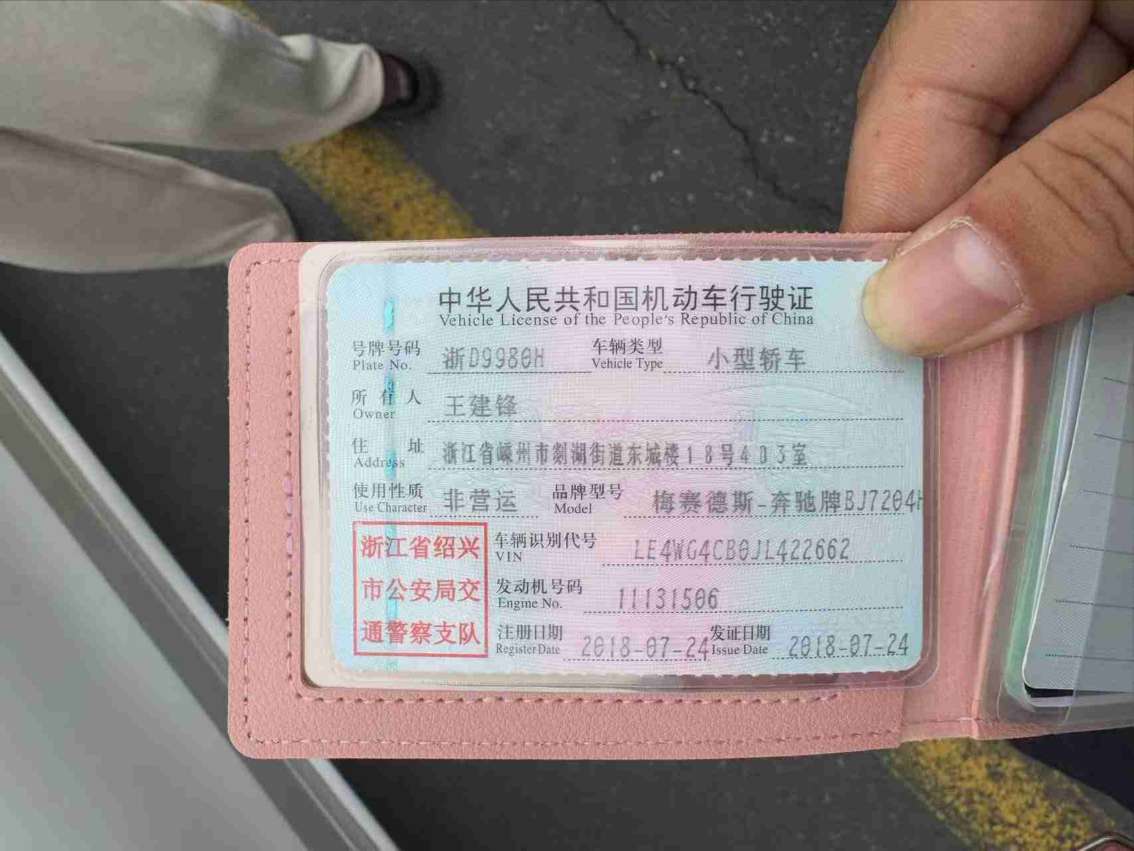 中华人民共和国机动车行驶证
Vehicle License of the People's Republic of China
号牌号码 浙D9980H 车辆类型 小型轿车
Plate No. Vehicle Type
所有人 王建锋
Owner
住址 浙江省嵊州市剡湖街道东城楼18号403室
Address
使用性质 非营运 品牌型号 梅赛德斯-奔驰牌BJ7204H
Use Character Model
浙江省绍兴
市公安局交
通警察支队
车辆识别代号 LE4WG4CB0JL422662
VIN
发动机号码 11131506
Engine No.
注册日期 2018-07-24 发证日期 2018-07-24
Register Date Issue Date